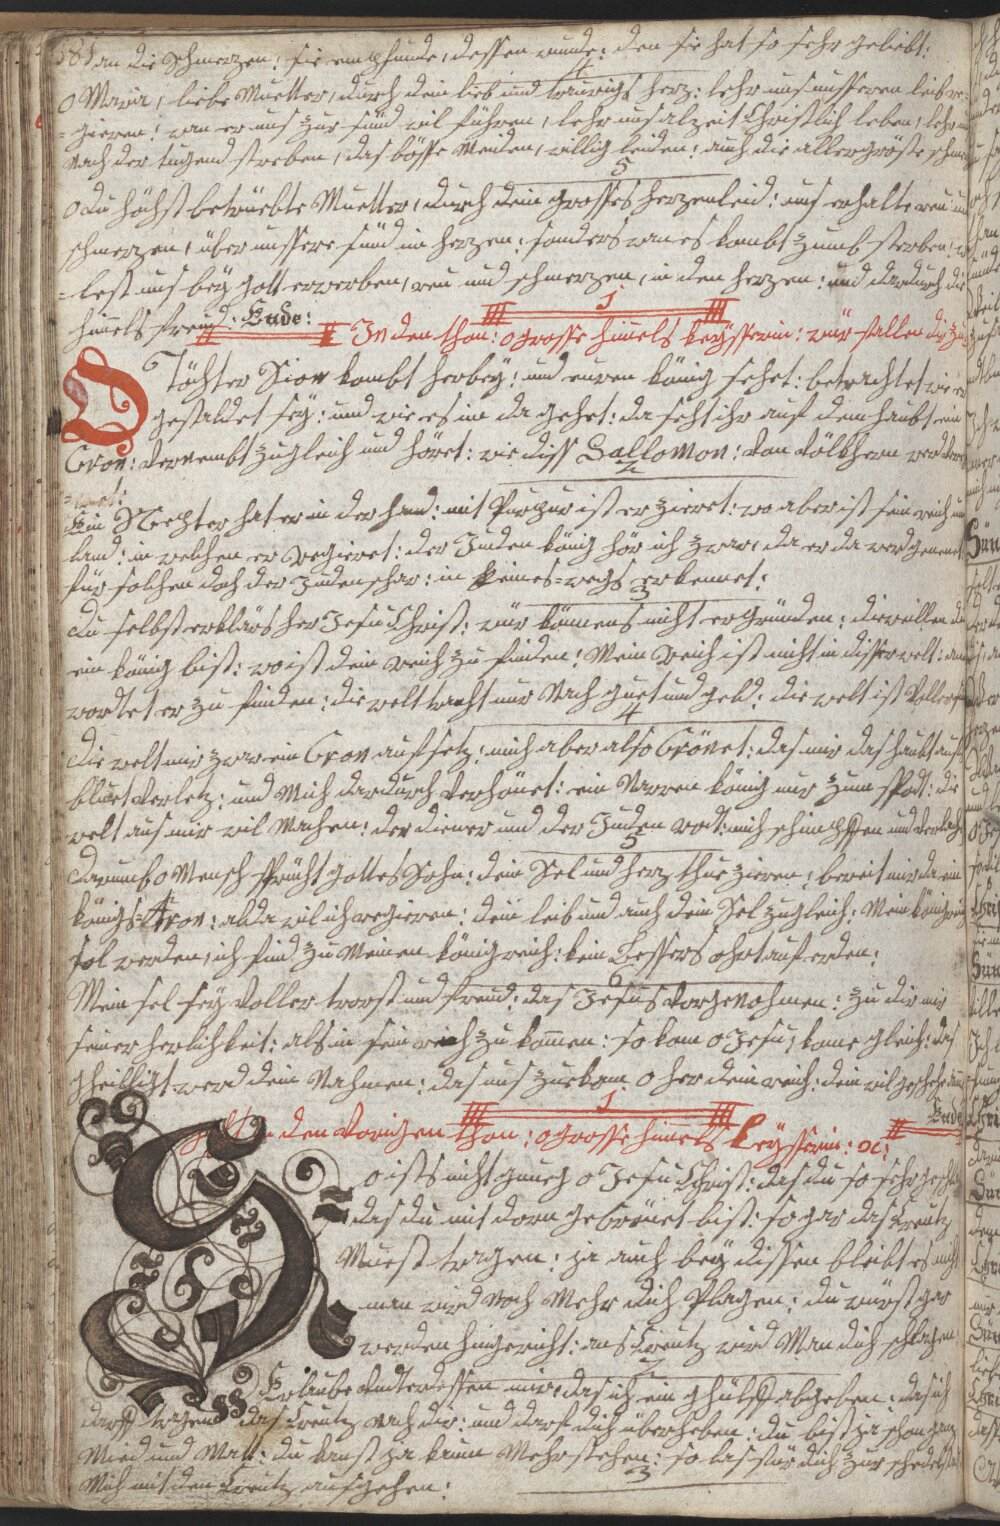 181 an die Schmerzen: sie empfunde, dessen wunde: den sie hat so sehr geliebt:
4
O Maria, liebe Muetter, durch dein lieb und traurigs herz: lehr uns unsseren leib re=
=gieren: wan er uns zur sünd wil führen, lehr uns alzeit Christlich leben, lehr
nach der tugend streben, das bösse meiden, willig leiden: auch die allergröste
5
O du höchst betrüebte Muetter, durch dein grosses herzenleid: uns erhalte reu und
schmerzen, über unssere sünd im herzen: sonders wan es kombt zumb sterben:
=lest uns beÿ gott erwerben, reu und schmerzen, in den herzen: und dardurch die
himels freud: Ende:
1
In den thon: o grosse himels keÿsserin: wür fallen dir zu
O Töchter Sion kombt herbeÿ: und euren könig sehet: betrachtet wie er
gestaldet seÿ: und wie es im da gehet: da seht ihr auf dem haubt ein
Cron: vernembt zugleich und höret: wie diss Sallomon: von völkhern
2
Ein Zepter hat er in der hand: mit Purpur ist er zieret: wo aber ist sein reich und
land: in welchen er regieret: der Juden könig hör ich zwar, da er da werd genenet
für solchen doch der Judenschar: in keines=wegs erkennet:
3
du selbst erklärs her Jesu Christ: wür könnens nicht ergründen: dieweillen du
ein könig bist: wo ist dein reich zu finden: Mein reich ist nicht in disser welt:
wortet er zu finden: die welt tracht nur nach guet und geld: die welt ist voller
4
die welt mir zwar ein Cron aufsetz: mich aber also Crönet: das mir das haubt auf
bluet verletz: und mich dardurch verhönet: ein Narren könig nur zum spodt: die
welt aus mir wil machen: der diener und der Juden rodt: mich schimpffen und verlach
5
darumb o Mensch spricht gottes Sohn: dein Sel und herz thue zieren: bereit mir da ein
königs=thron: alda wil ich regieren: dein leib und auch dein Sel zugleich: Mein königreich
sol werden, ich find zu meinen königreich: kein bessers ohrt auf erden:
6
Mein sel seÿ voller trost und freud: das Jesus vorgenohmen: zu dir mit
seiner herlichkeit: als in sein reich zu komen: so kom o Jesu, kome gleich: das
gheilligt werd dein Nahmen: das uns zuekom o her dein reich: dein wil geschehe
Ende
1
in den vorigen thon: o grosse himels keÿsserin: ec:
So ists nicht gnueg o Jesu Christ: das du so sehr
das du mit dorn gecrönet bist: so gar das Creutz
Muest tragen: ja auch beÿ dissen bleibt es nicht
man wird noch mehr dich Plagen: du würst gar
werden hingericht: ans Creutz wird Man dich schlagen
2
Erlaube underdessen mir, das ich ein ghülff abgeben: das ich
darff tragen das Creutz nach dir: und darf dich überheben: du bist ja schon ganz
Mied und Matt: du kanst ja kaum mehr stehen: so las für dich zur schedelstatt
Mich mit den Creutz aufgehen:
3